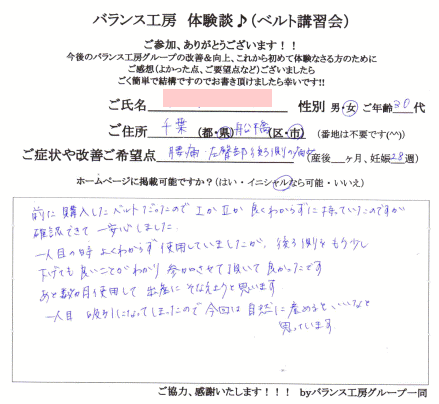 バランス工房 体験談♪(ベルト講習会)
ご参加、ありがとうございます!!
今後のバランス工房グループの改善&向上、これから初めて体験なさる方のために
ご感想(よかった点、ご要望点など)ございましたら
ごく簡単で結構ですのでお書き頂けましたら幸いです!!
ご氏名 性別 男・女 ご年齢 30 代
ご住所 千葉 (都・県) 船橋 (区・市) (番地は不要です(^^))
ご症状や改善ご希望点 腰痛・左臀部後ろ側の痛み (産後 ヶ月、妊娠 28 週)
ホームページに掲載可能ですか?(はい・イニシャルなら可能・いいえ)
前に購入したベルトだったので Ⅰか Ⅱか良くわからずに持っていたのですが
確認できて一安心しました。
一人目の時よくわからず使用していましたが、後ろ側をもう少し
下げても良いことがわかり参加させて頂いて良かったです
あと数ヶ月使用して出産にそなえようと思います
一人目 吸引になってしまったので今回は自然に産めるといいなと
思っています
ご協力、感謝いたします!!! byバランス工房グループ一同